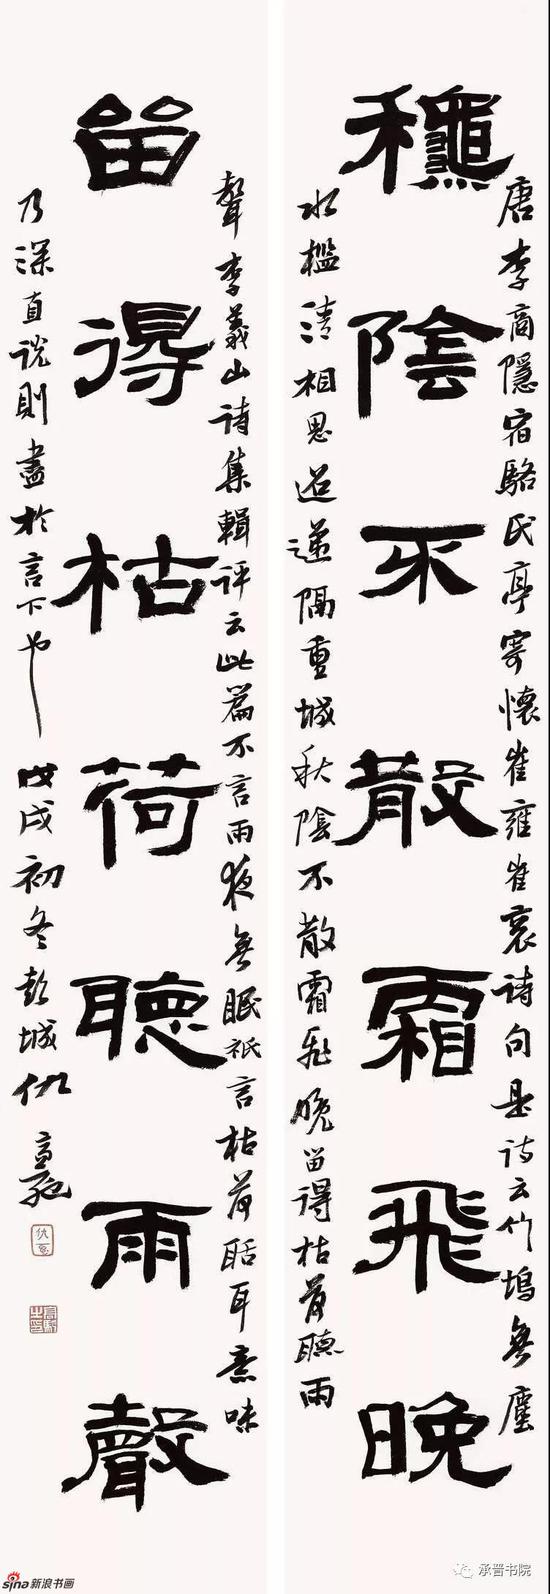 龝陰不散霜飛晚
唐李商隱宿駱氏亭寄懷崔雍崔衮詩句是詩云竹塢無塵
水檻清相思迢遞隔重城秋陰不散霜飛晚留得枯荷聽雨
留得枯荷聽雨聲
聲李義山詩集輯評云此篇不言雨夜無眠祇言枯荷聒耳意味
乃深直說則盡於言下也戊戌初冬彭城仇高馳
sina新浪书画
承晋书院